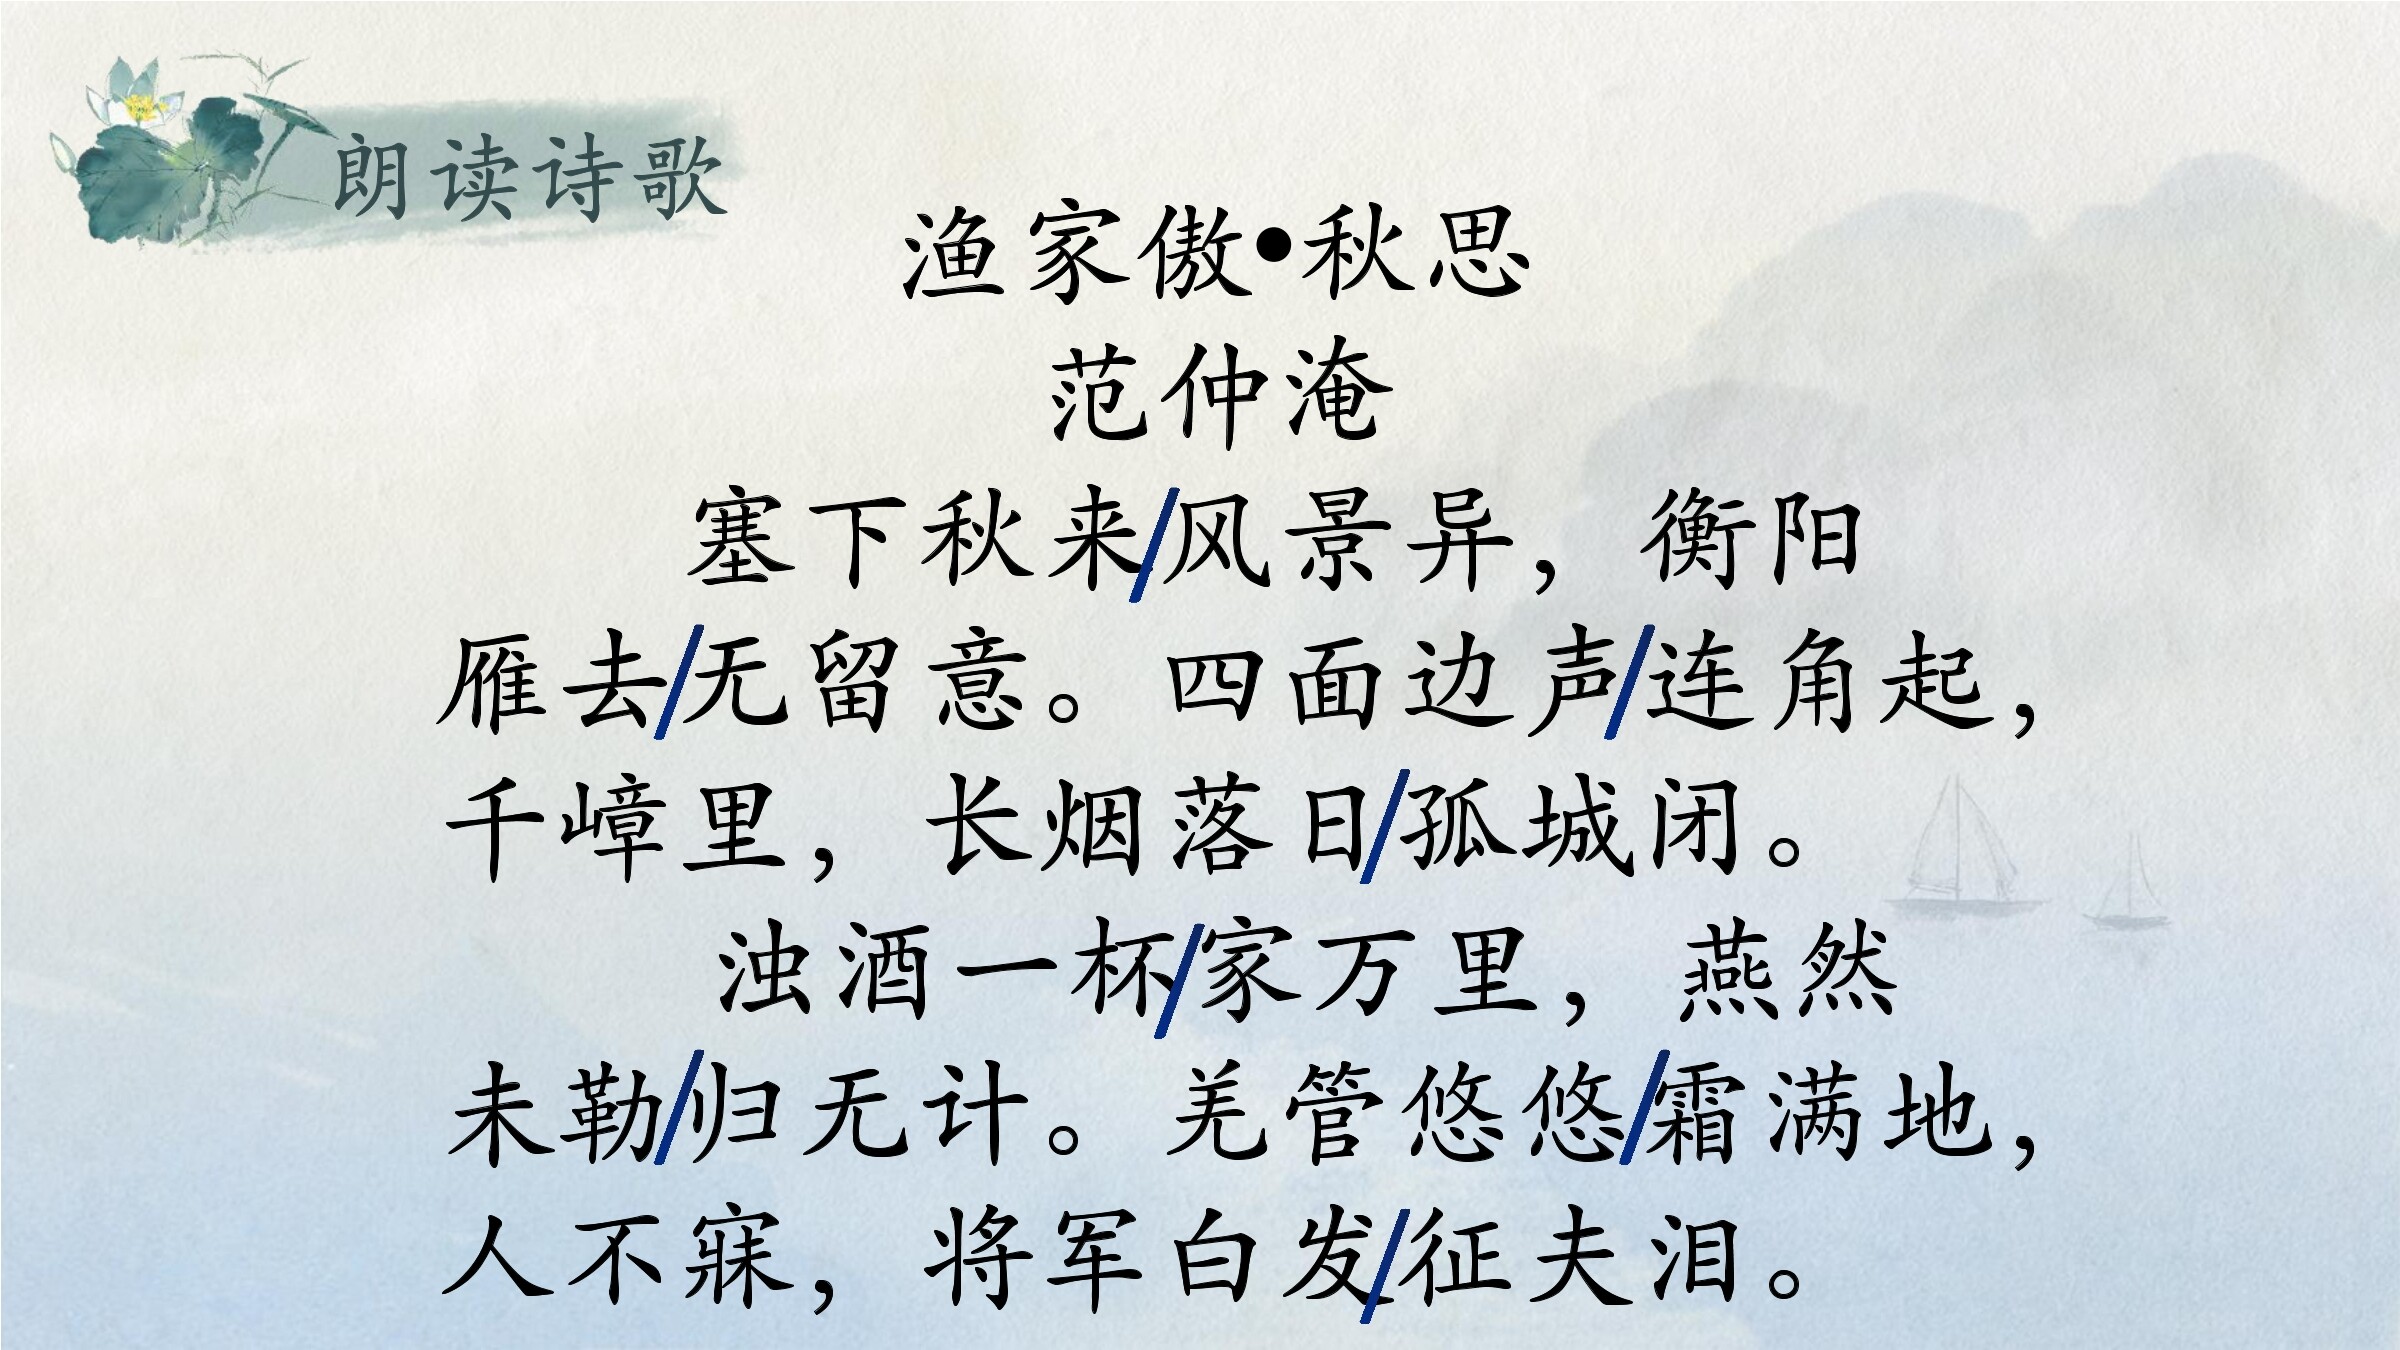 朗读诗歌
渔家傲•秋思
范仲淹
塞下秋来/风景异，衡阳
雁去/无留意。四面边声/连角起，
千嶂里，长烟落日/孤城闭。
浊酒一杯/家万里，燕然
未勒/归无计。羌管悠悠/霜满地，
人不寐，将军白发/征夫泪。